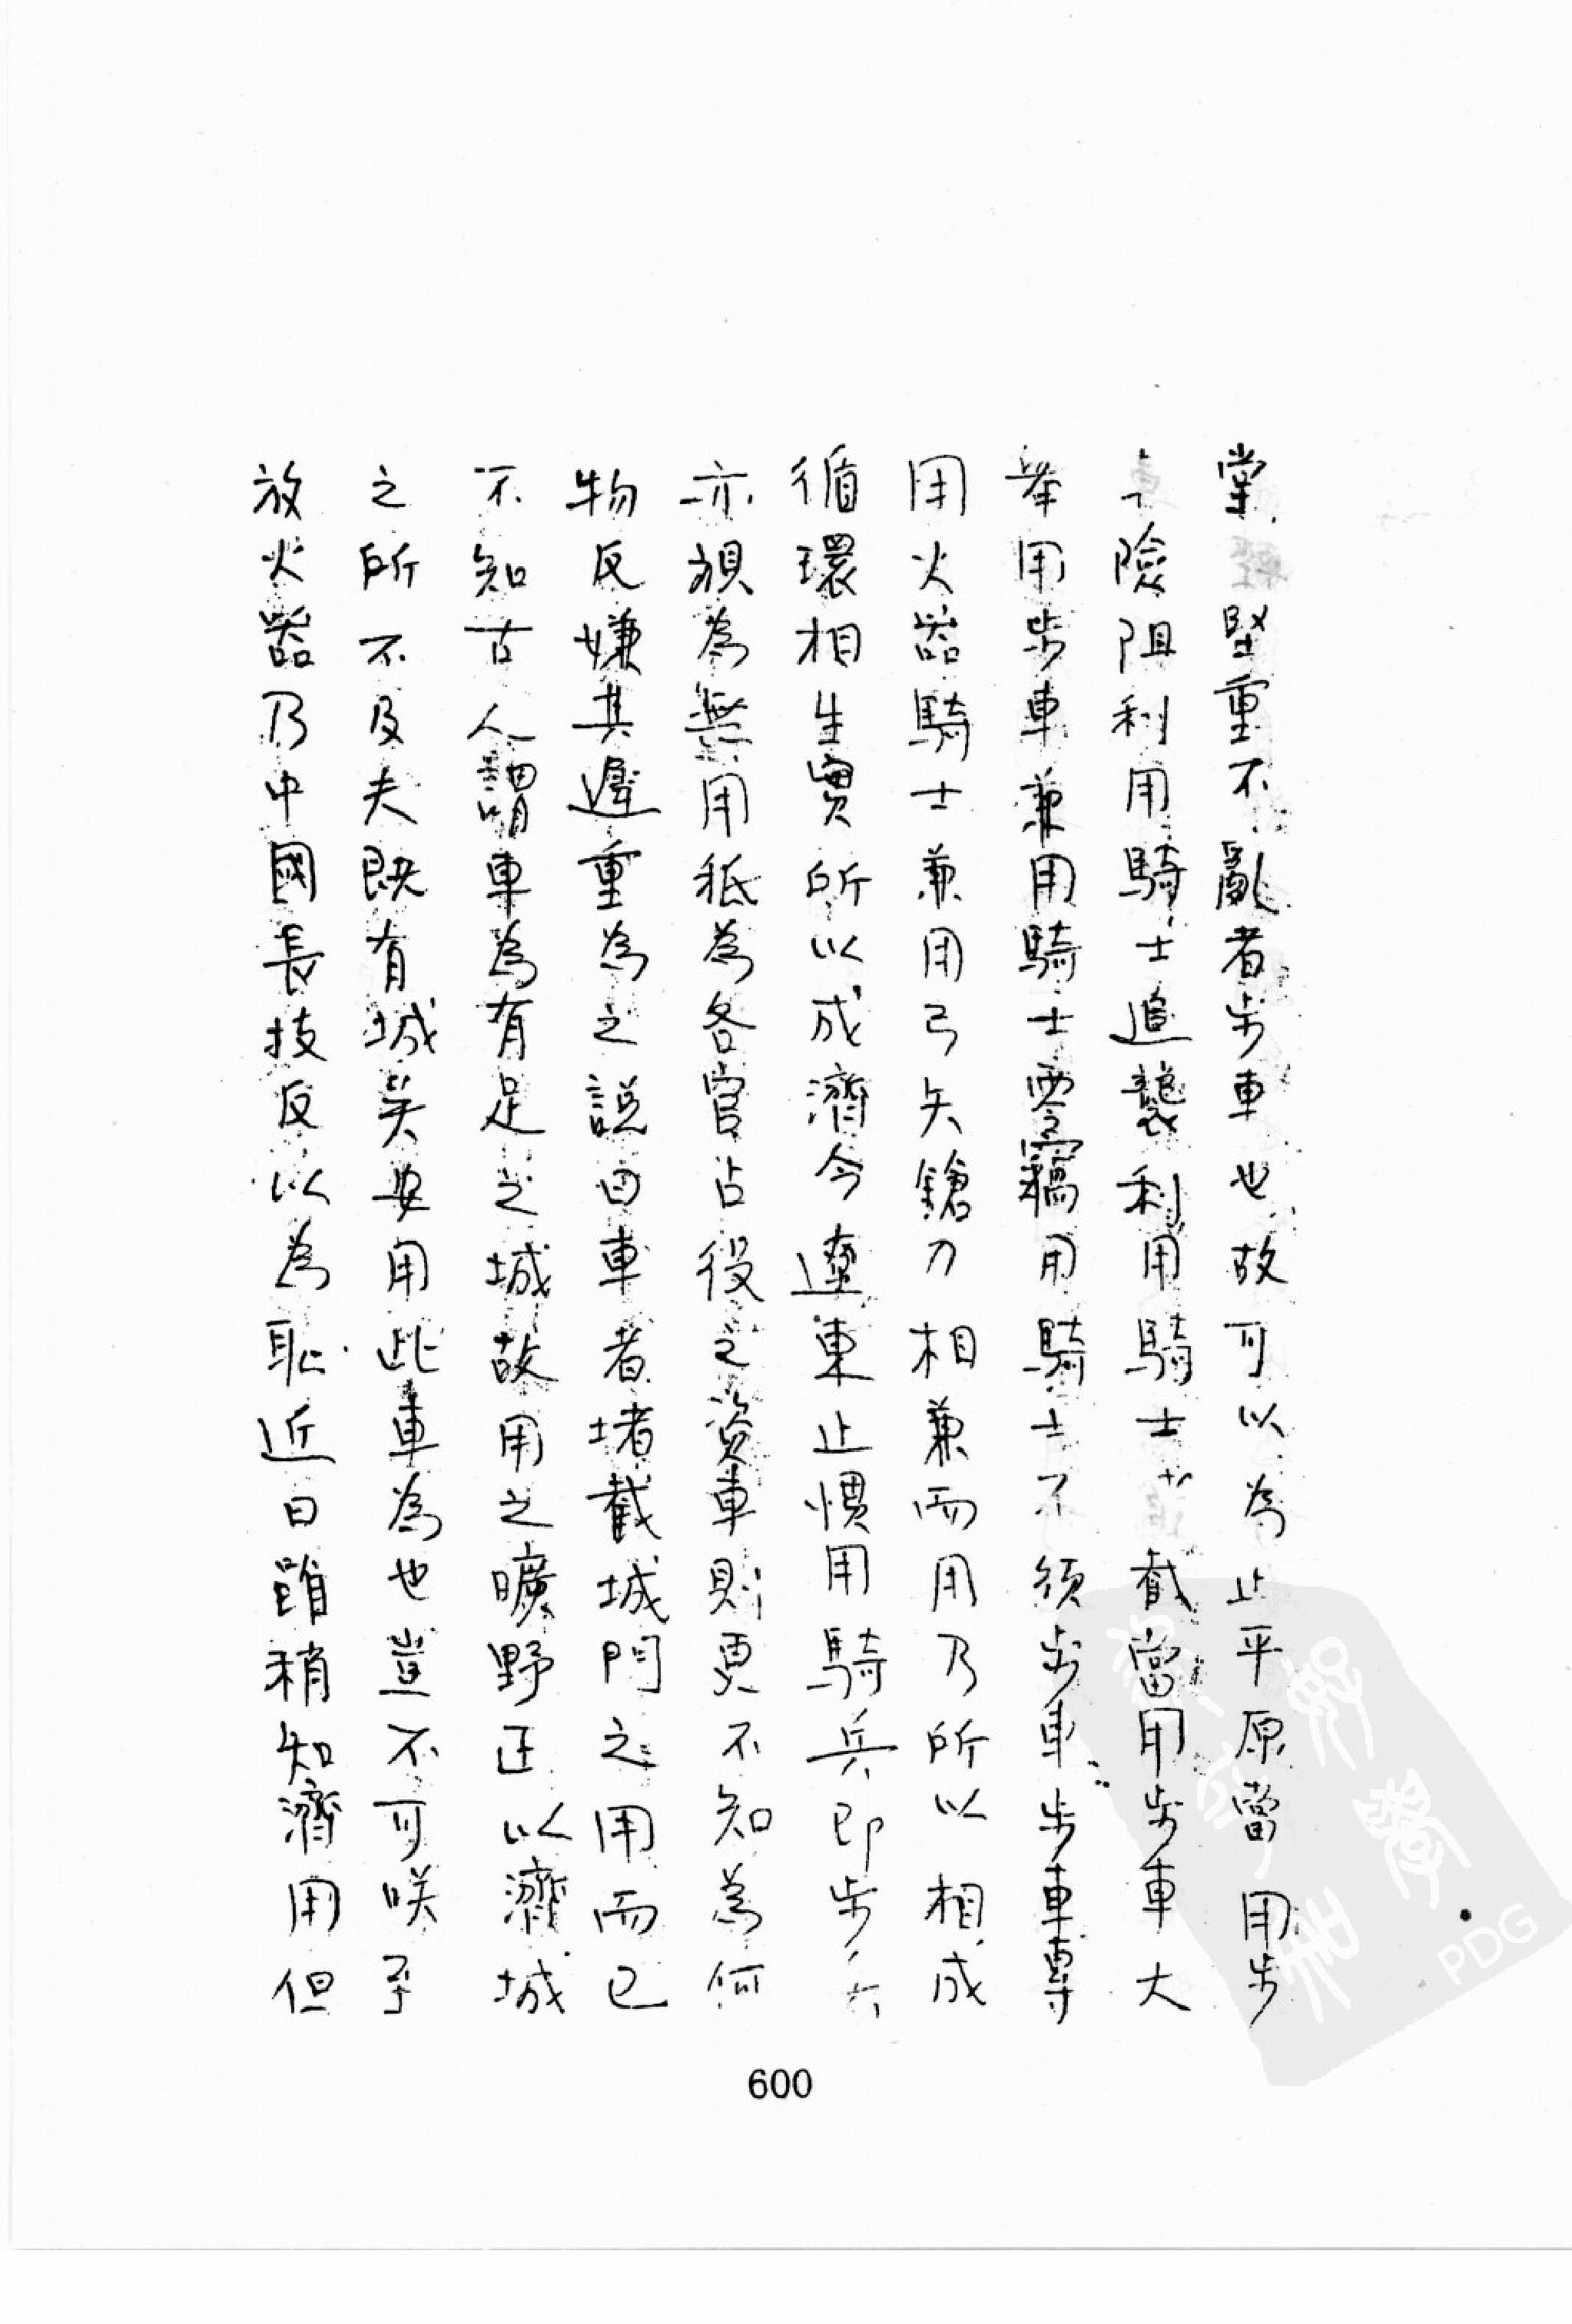 掌堅重不亂者步車也故可以為止平原當用步
險阻利用騎士追襲利用騎士截當用步車大
舉用步車兼用騎士零竊用騎士不須步車步車專
用火器騎士兼用弓矢鎗刀相兼而用乃所以相成
循環相生實所以成濟今遼東止慣用騎兵即步六
亦視為無用秪為各官占役之資車則更不知為何
物反嫌其遲重為之說曰車者堵截城門之用而已
不知古人謂車為有足之城故用之曠野正以濟城
之所不及夫既有城矣安用此車為也豈不可咲乎
放火器乃中國長技反以為恥近日雖稍知濟用但
600
PDG